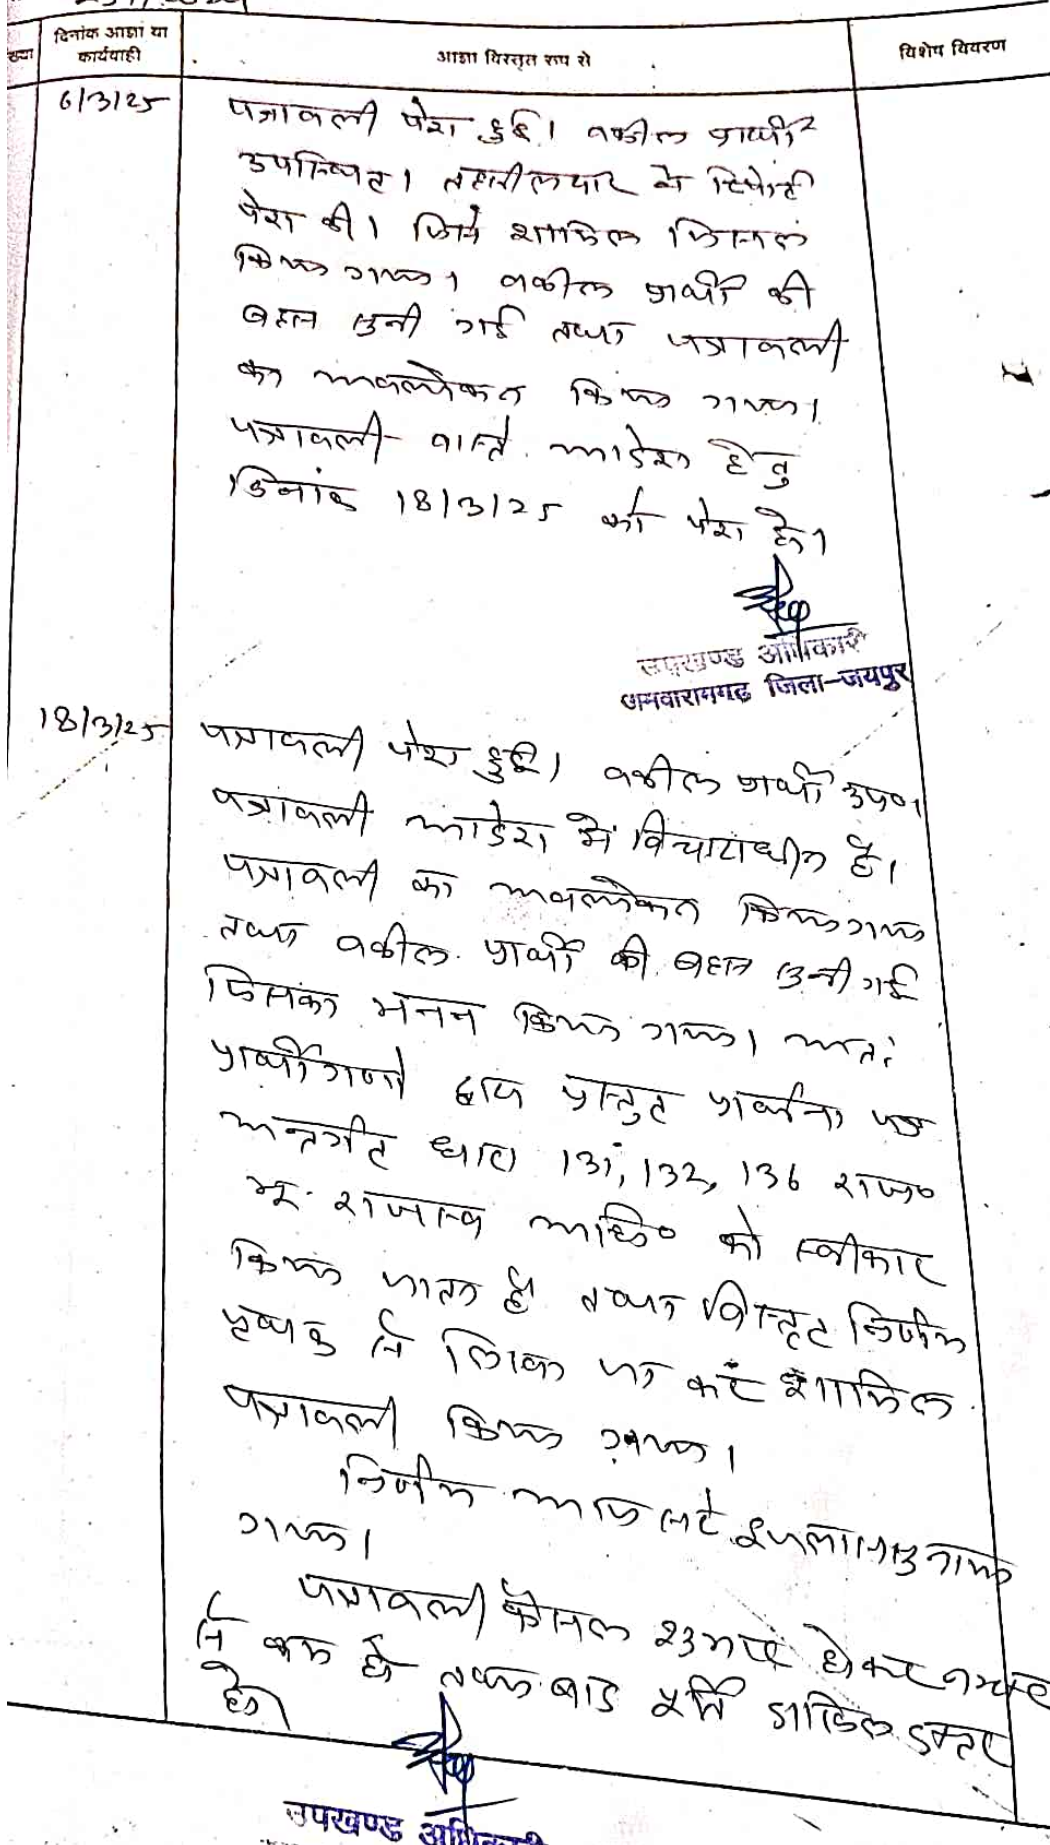 दिनांक आज्ञा या
कार्यवाही
आज्ञा विस्तृत रूप से
विशेष विवरण
6/3/25
पत्रावली पेश हुई। वकील प्रार्थी
उपस्थित। तहसीलदार ने रिपोर्ट
पेश की। जिसे शामिल मिसल
किया गया। वकील प्रार्थी की
बहस सुनी गई तथा पत्रावली
का अवलोकन किया गया।
पत्रावली वास्ते आदेश हेतु
दिनांक 18/3/25 को पेश हो।
उपखण्ड अधिकारी
जमवारामगढ़ जिला-जयपुर
18/3/25
पत्रावली पेश हुई। वकील प्रार्थी उप०।
पत्रावली आदेश में विचाराधीन है।
पत्रावली का अवलोकन किया गया
तथा वकील प्रार्थी की बहस सुनी गई
जिसका मनन किया गया। अतः
प्रार्थीगणों द्वारा प्रस्तुत प्रार्थना पत्र
अन्तर्गत धारा 131, 132, 136 राज०
भू. राजस्व अधि० को स्वीकार
किया जाता है तथा विस्तृत निर्णय
पृथक से लिखा जाकर शामिल
पत्रावली किया गया।
निर्णय आज सरे इजलास सुनाया
गया।
पत्रावली फैसल शुमार होकर नम्बर
से कम हो तथा बाद पूर्ति दाखिल दफ्तर
हो।
उपखण्ड अधिकारी